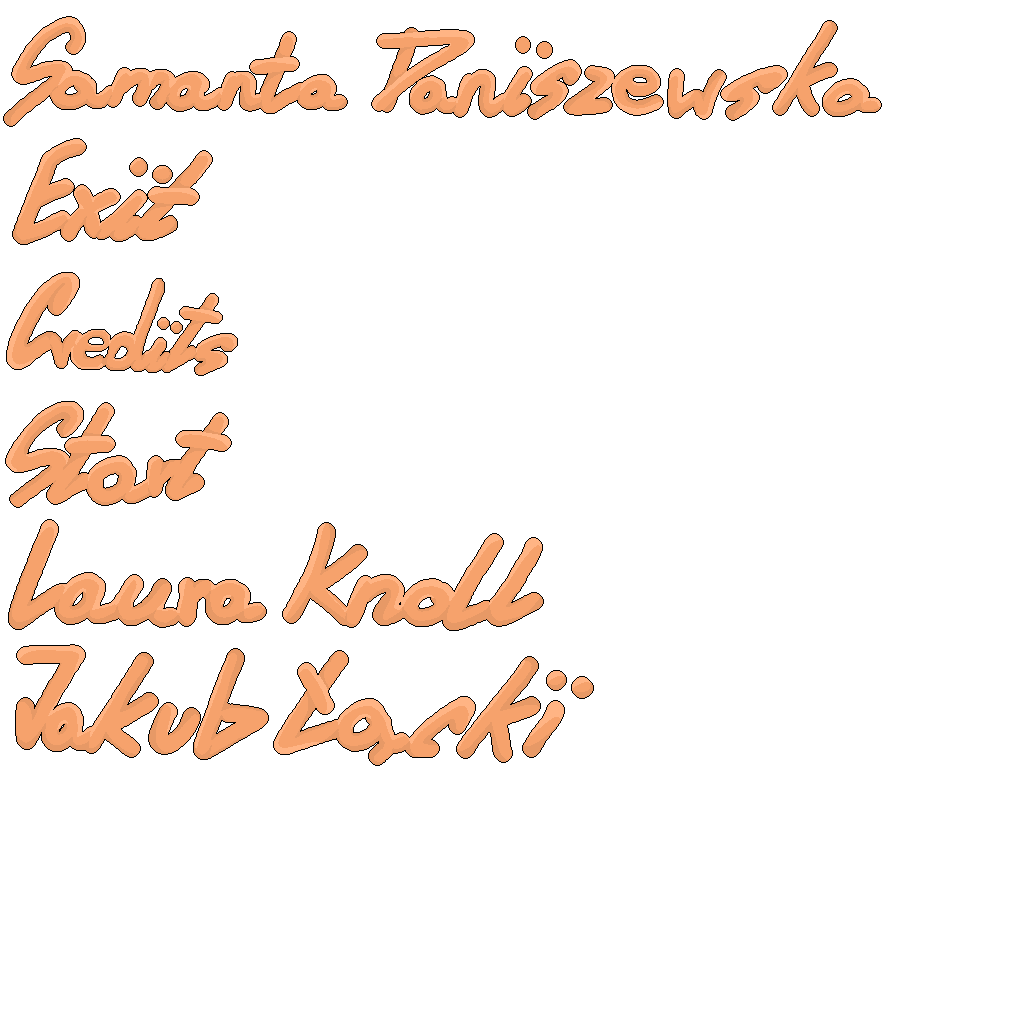 Samanta Danïszewska
Exït
Credïts
Start
Laura Knoll
Jakub Łąskï